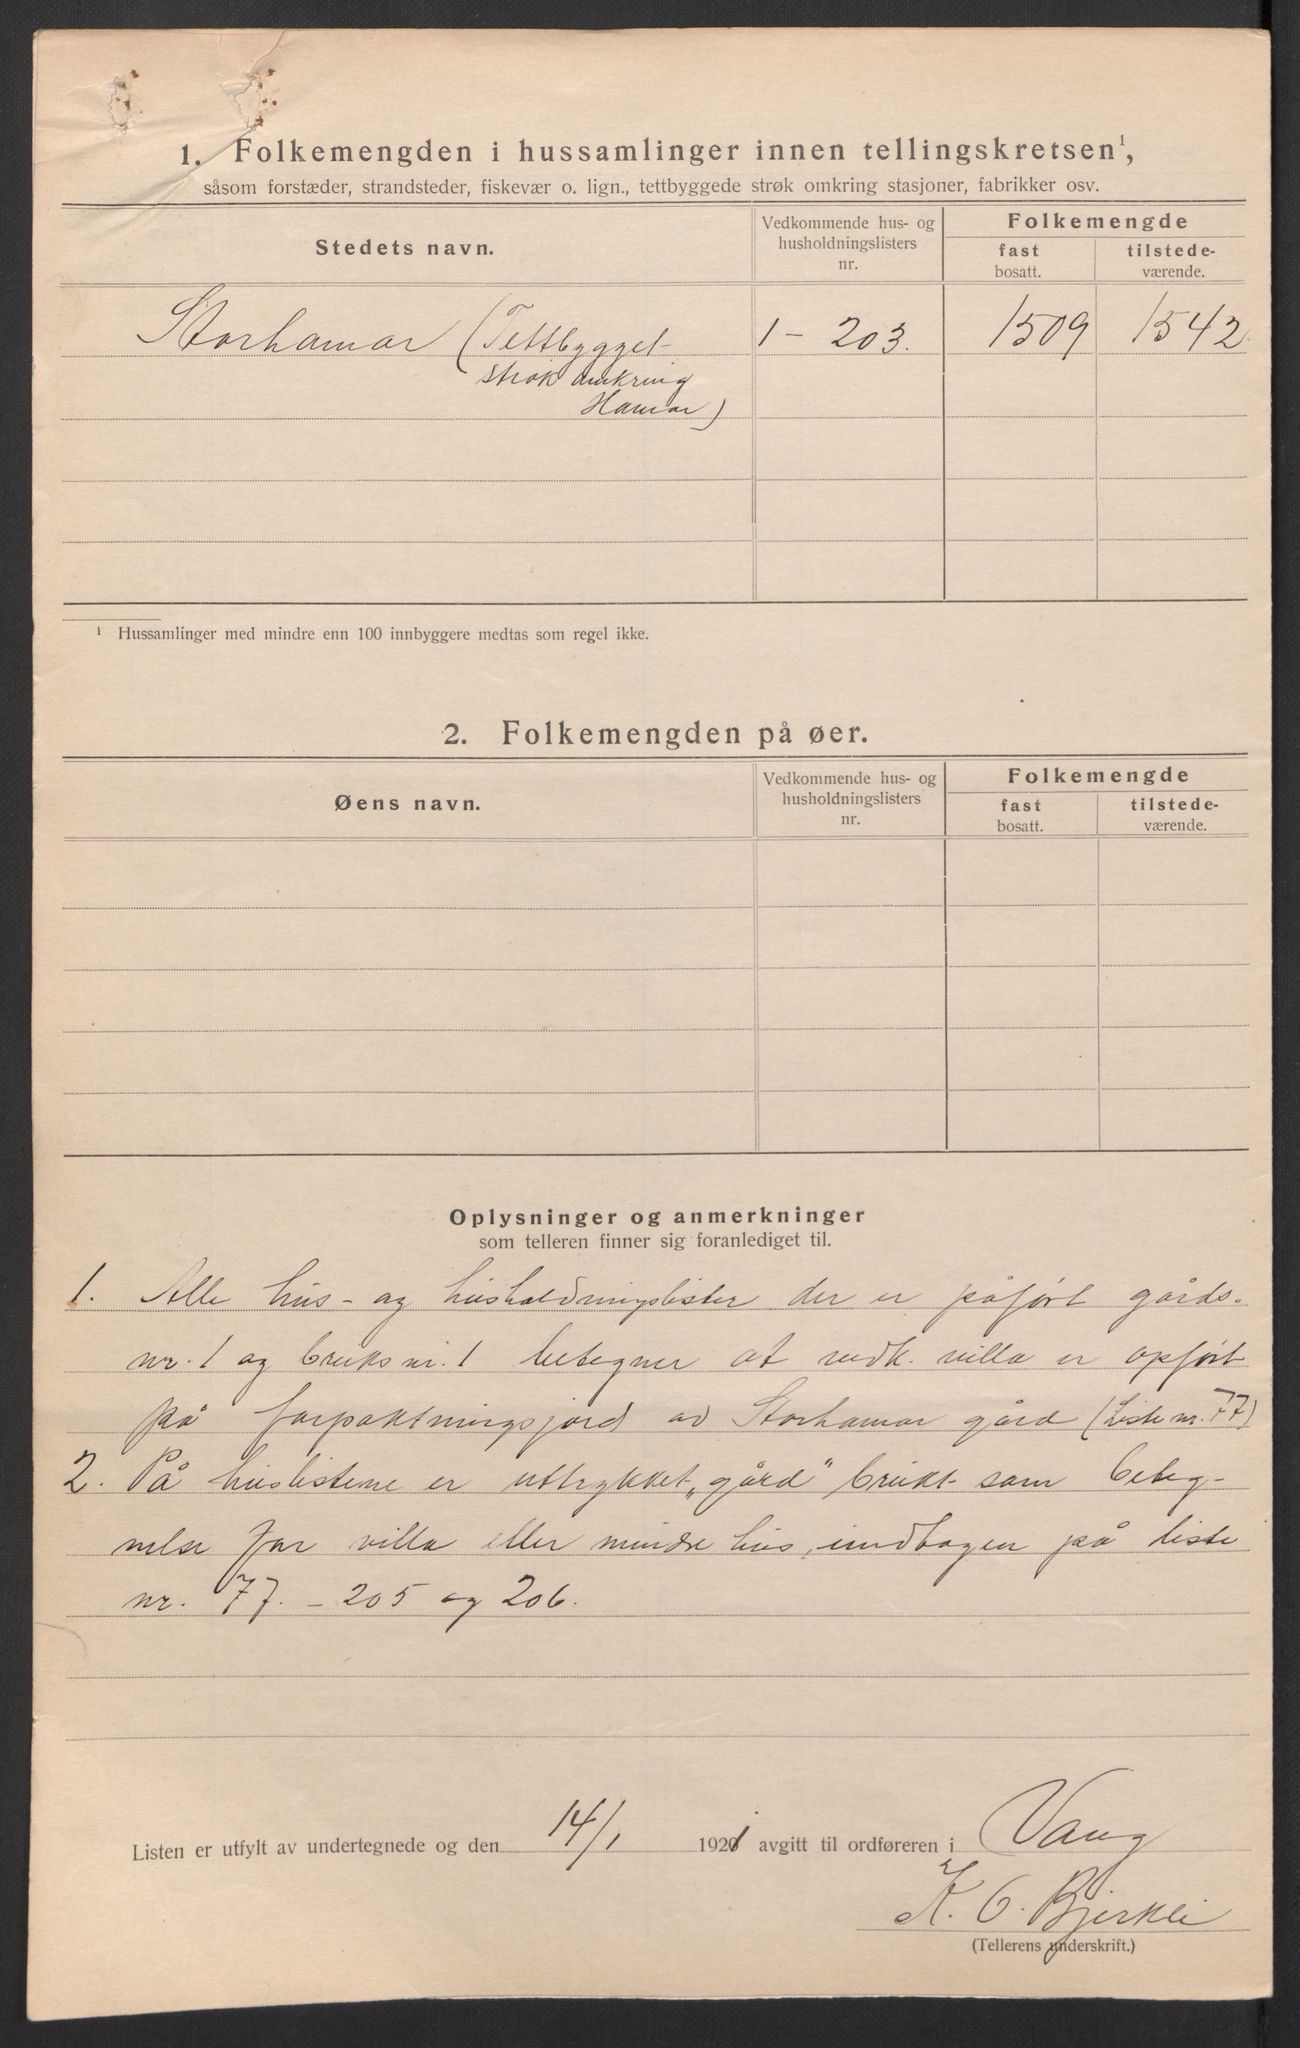 1. Folkemengden i hussamlinger innen tellingskretsen¹,
såsom forstæder, strandsteder, fiskevær o. lign., tettbyggede strøk omkring stasjoner, fabrikker osv.
Stedets navn.
Vedkommende hus- og
husholdningslisters
nr.
Folkemengde
fast
bosatt.
tilstede-
værende.
Storhamar (Tettbygget
strøk omkring
Hamar)
1 - 203.
1509
1542
¹ Hussamlinger med mindre enn 100 innbyggere medtas som regel ikke.
2. Folkemengden på øer.
Øens navn.
Vedkommende hus- og
husholdningslisters
nr.
Folkemengde
fast
bosatt.
tilstede-
værende.
Oplysninger og anmerkninger
som telleren finner sig foranlediget til.
1. Alle hus- og husholdningslister der er påført gårds-
nr. 1 og bruksnr. 1 betegner at vedk. villa er opført
på forpaktningsjord av Storhamar gård (Liste nr. 77)
2. På huslistene er uttrykket „gård" brukt som beteg-
nelse for villa eller mindre hus, undtagen på liste
nr. 77. - 205 og 206.
Listen er utfylt av undertegnede og den 14/1 1921 avgitt til ordføreren i Vang
K. O. Bjerkli
(Tellerens underskrift.)